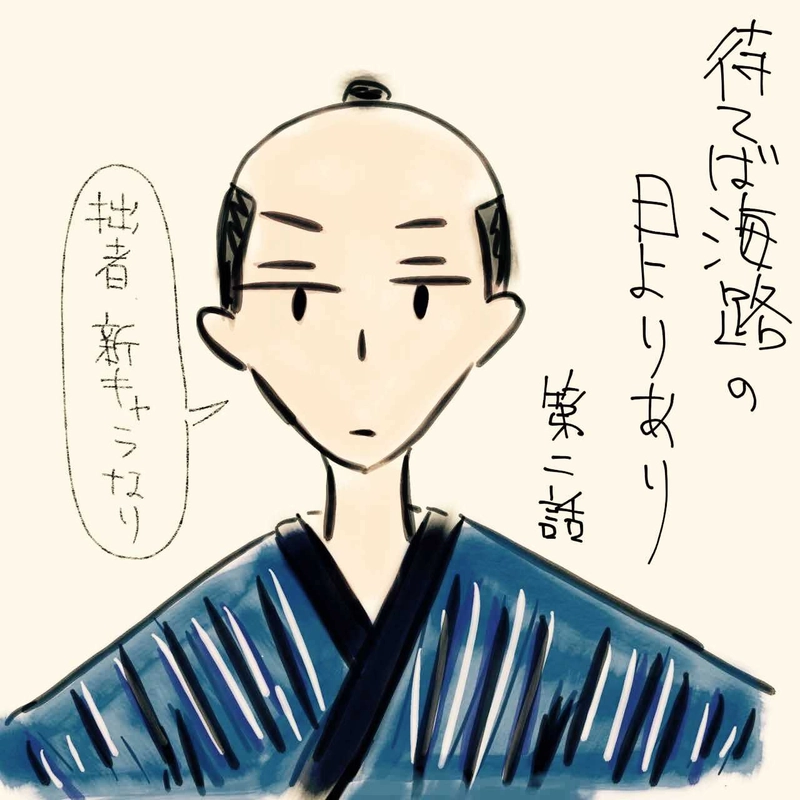 待てば海路の
日よりあり
第二話
拙者 新キャラなり